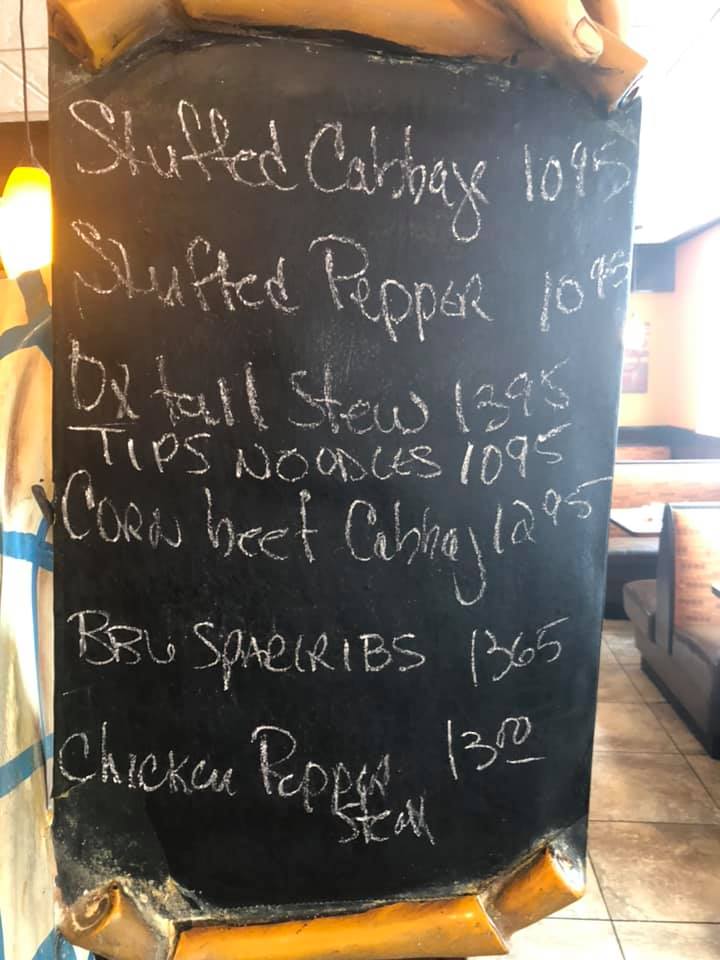 Stuffed Cabbage 1095
Stuffed Pepper 1095
Ox tail Stew 1395
TIPS NOODLES 1095
CORN beef Cabbag 1295
BBQ SPARERIBS 1365
Chicken Pepper 1300
Steak